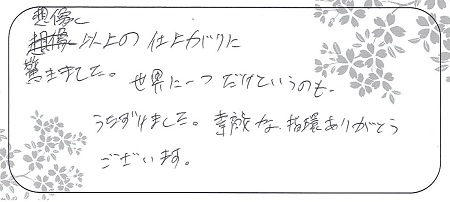 想像
想像以上の仕上がりに
驚きました。
世界に一つだけというのも
うなずけました。素敵な指環ありがとう
ございます。